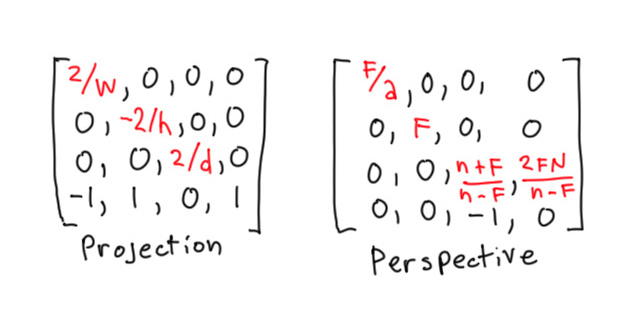 2/w, 0, 0, 0
0, -2/h, 0, 0
0, 0, 2/d, 0
-1, 1, 0, 1
Projection
F/a, 0, 0, 0
0, F, 0, 0
0, 0, n+F/n-F, 2FN/n-F
0, 0, -1, 0
Perspective